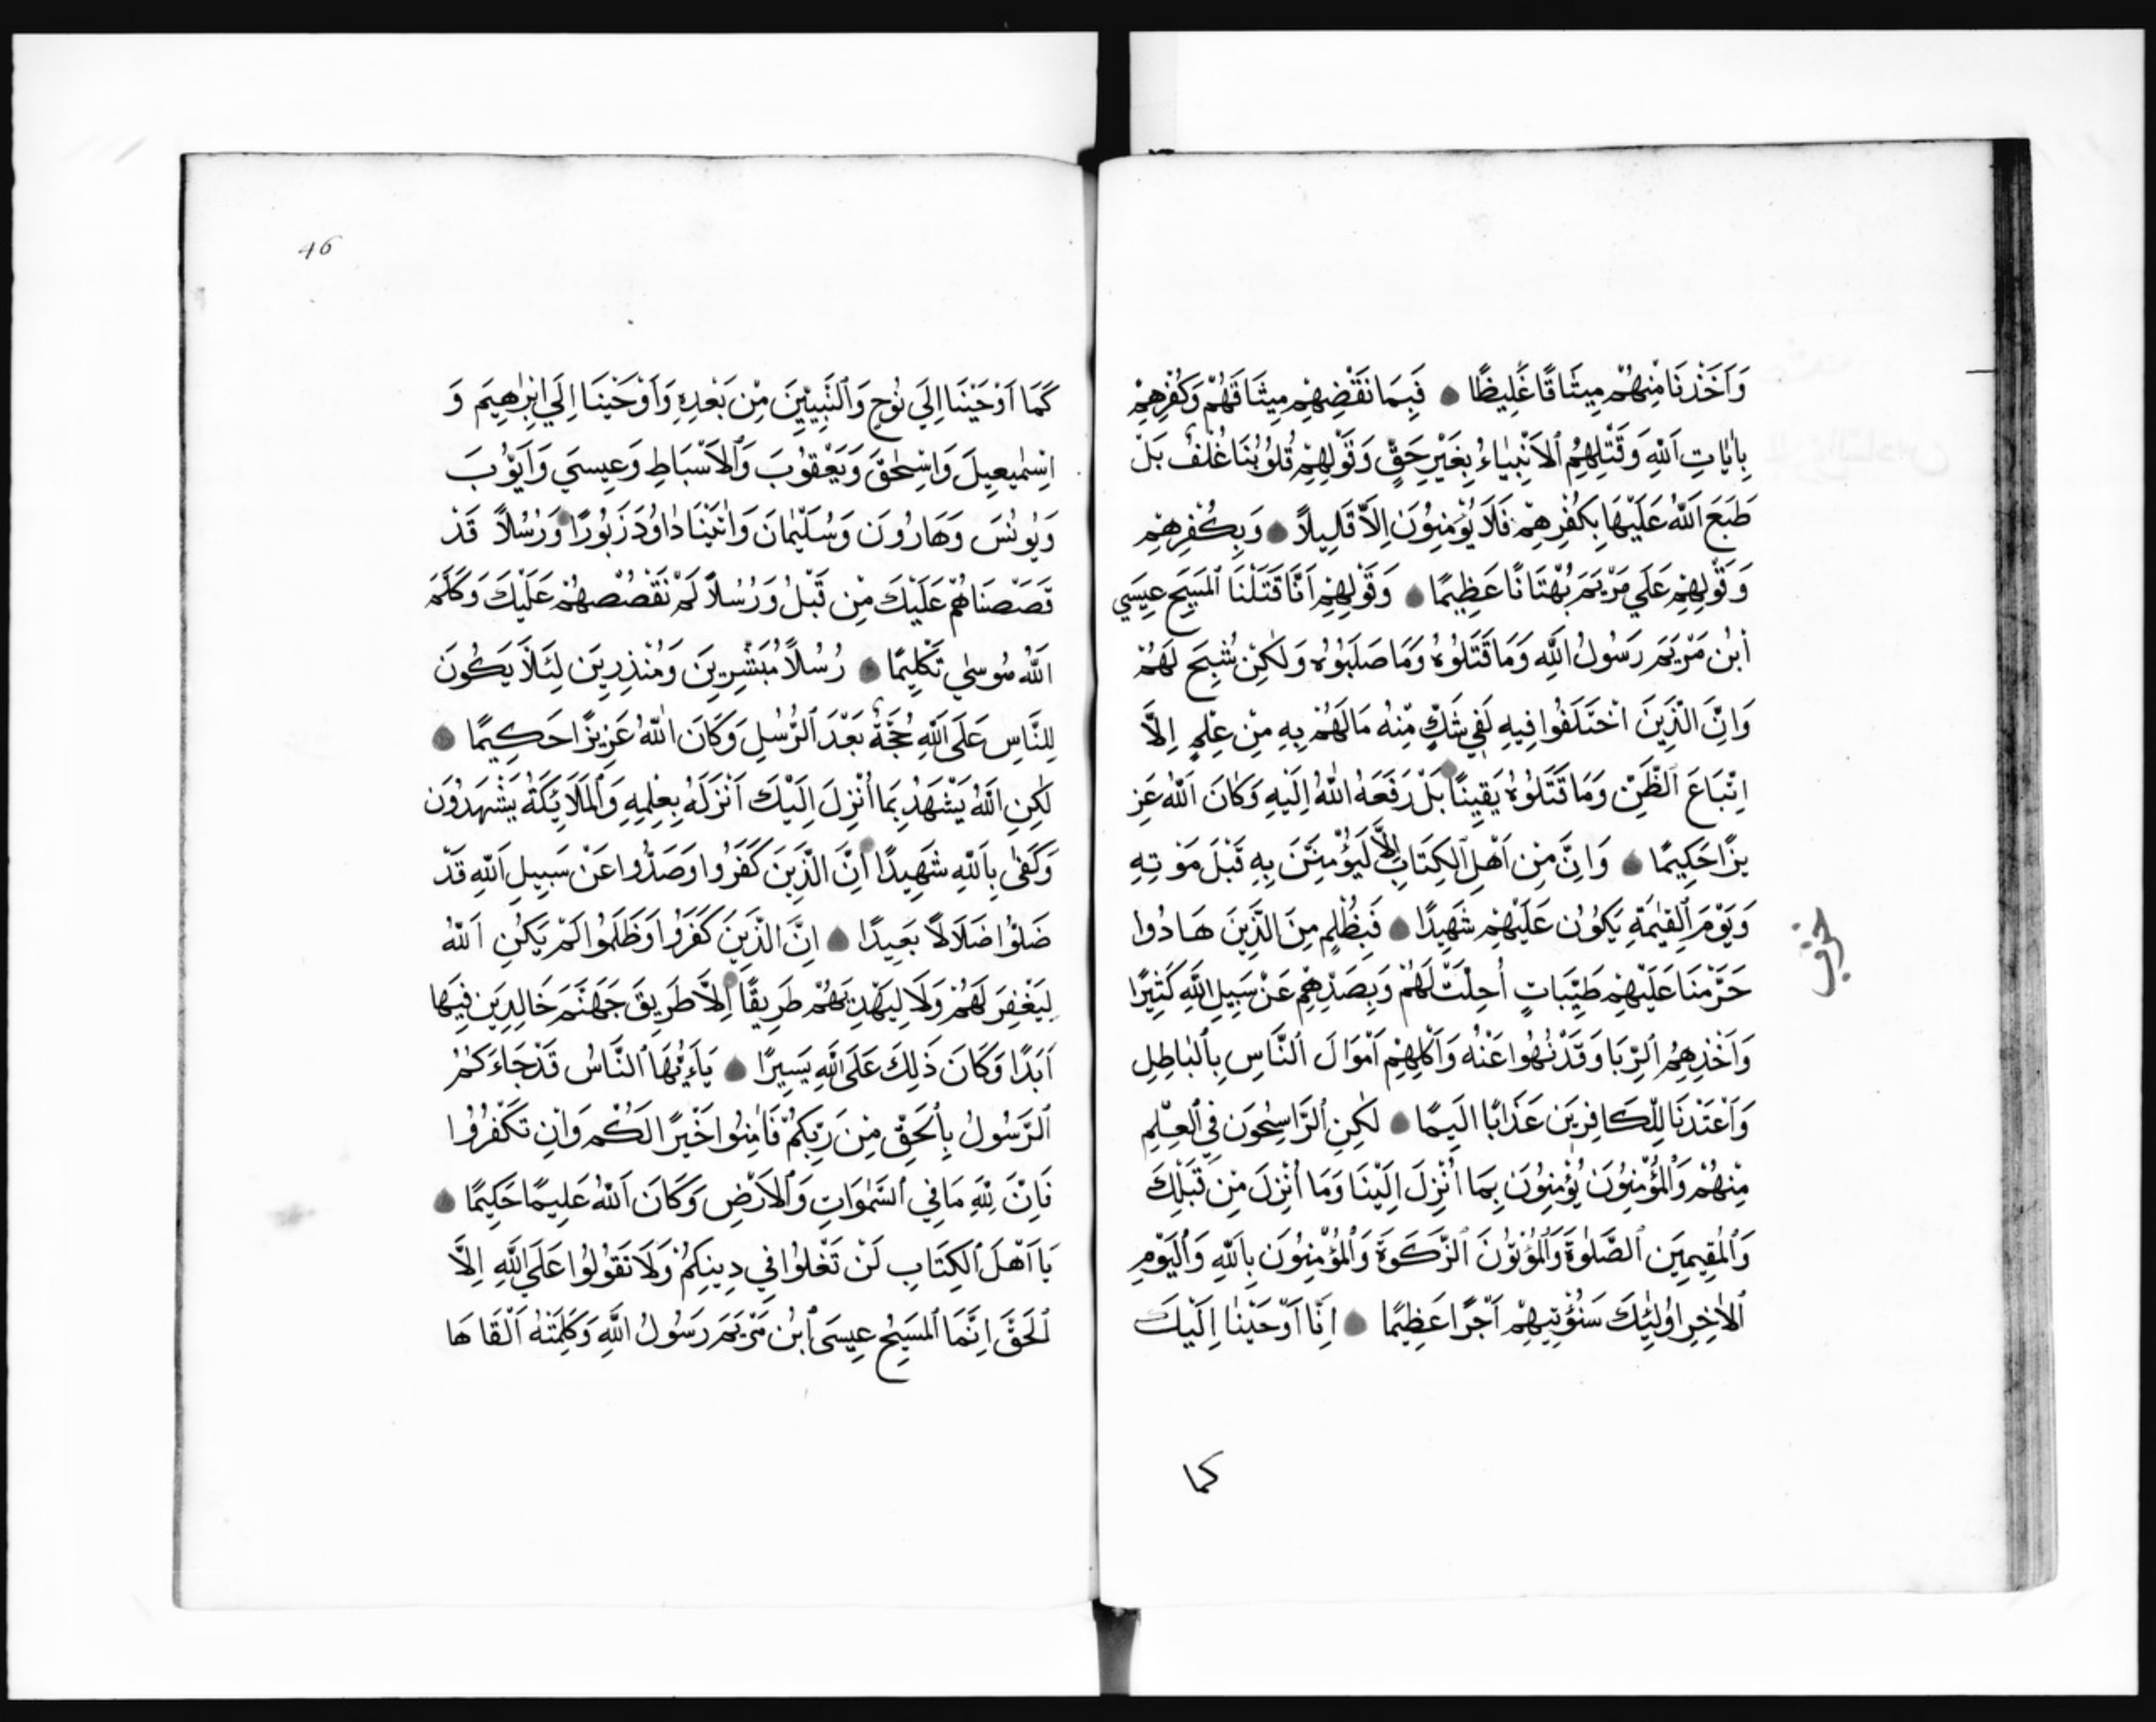 وَاَخَذْنَا مِنْهُمْ مِيثَاقًا غَلِيظًا فَبِمَا نَقْضِهِمْ مِيثَاقَهُمْ وَكُفْرِهِمْ
بِاٰيَاتِ اَللّٰهِ وَقَتْلِهِمُ اَلْاَنْبِيَاءَ بِغَيْرِ حَقٍّ وَقَوْلِهِمْ قُلُوبُنَا غُلْفٌ بَلْ
طَبَعَ اَللّٰهُ عَلَيْهَا بِكُفْرِهِمْ فَلَا يُؤْمِنُونَ اِلَّا قَلِيلاً وَبِكُفْرِهِمْ
وَقَوْلِهِمْ عَلَي مَرْيَمَ بُهْتَانًا عَظِيمًا وَقَوْلِهِمْ اَنَّا قَتَلْنَا اَلْمَسِيحَ عِيسَي
اَبْنَ مَرْيَمَ رَسُولَ اَللّٰهِ وَمَا قَتَلُوهُ وَمَا صَلَبُوهُ وَلٰكِنْ شُبِّحَ لَهُمْ
وَاِنَّ الَّذِينَ اَخْتَلَفُوا فِيهِ لَفِي شَكٍّ مِّنْهُ مَا لَهُمْ بِهِ مِنْ عِلْمٍ اِلَّا
اِتِّبَاعَ اَلظَّنِّ وَمَا قَتَلُوهُ يَقِينًا بَلْ رَفَعَهُ اَللّٰهُ اِلَيْهِ وَكَانَ اَللّٰهُ عَزِ
يزًا حَكِيمًا وَاِنْ مِنْ اَهْلِ اَلْكِتَابِ اِلَّا لَيُؤْمِنَنَّ بِهِ قَبْلَ مَوْتِهِ
وَيَوْمَ اَلْقِيٰمَةِ يَكُونُ عَلَيْهِمْ شَهِيدًا فَبِظُلْمٍ مِنَ الَّذِينَ هَادُوا
حَرَّمْنَا عَلَيْهِمْ طَيِّبَاتٍ اُحِلَّتْ لَهُمْ وَبِصَدِّهِمْ عَنْ سَبِيلِ اَللّٰهِ كَثِيرًا
وَاَخْذِهِمُ اَلرِّبَا وَقَدْ نُهُوا عَنْهُ وَاَكْلِهِمْ اَمْوَالَ اَلنَّاسِ بِاَلْبَاطِلِ
وَاَعْتَدْنَا لِلْكَافِرِينَ عَذَابًا اَلِيمًا لٰكِنِ اَلرَّاسِخُونَ فِي اَلْعِلْمِ
مِنْهُمْ وَاَلْمُؤْمِنُونَ يُؤْمِنُونَ بِمَا اُنْزِلَ اِلَيْنَا وَمَا اُنْزِلَ مِنْ قَبْلِكَ
وَاَلْمُقِيمِينَ اَلصَّلٰوةَ وَاَلْمُؤْتُونَ اَلزَّكَوةَ وَاَلْمُؤْمِنُونَ بِاَللّٰهِ وَاَلْيَوْمِ
اَلْاٰخِرِ اُولٰئِكَ سَنُؤْتِيهِمْ اَجْرًا عَظِيمًا اِنَّا اَوْحَيْنَا اِلَيْكَ
حزب
كما
46
كَمَا اَوْحَيْنَا اِلَي نُوحٍ وَاَلنَّبِيِّينَ مِنْ بَعْدِهِ وَاَوْحَيْنَا اِلَي اِبْرٰهِيمَ وَ
اِسْمٰعِيلَ وَاِسْحٰقَ وَيَعْقُوبَ وَاَلْاَسْبَاطِ وَعِيسَي وَاَيُّوبَ
وَيُونُسَ وَهَارُونَ وَسُلَيْمٰنَ وَاٰتَيْنَا دٰاوُدَ زَبُورًا وَرُسُلاً قَدْ
قَصَصْنَاهُمْ عَلَيْكَ مِنْ قَبْلُ وَرُسُلاً لَمْ نَقْصُصْهُمْ عَلَيْكَ وَكَلَّمَ
اَللّٰهُ مُوسٰي تَكْلِيمًا رُسُلاً مُبَشِّرِينَ وَمُنْذِرِينَ لِئَلَّا يَكُونَ
لِلنَّاسِ عَلَي اَللّٰهِ حُجَّةٌ بَعْدَ اَلرُّسُلِ وَكَانَ اَللّٰهُ عَزِيزًا حَكِيمًا
لٰكِنِ اَللّٰهُ يَشْهَدُ بِمَا اُنْزِلَ اِلَيْكَ اَنْزَلَهُ بِعِلْمِهِ وَاَلْمَلَائِكَةُ يَشْهَدُونَ
وَكَفٰي بِاَللّٰهِ شَهِيدًا اِنَّ الَّذِينَ كَفَرُوا وَصَدُّوا عَنْ سَبِيلِ اَللّٰهِ قَدْ
ضَلُّوا ضَلَالاً بَعِيدًا اِنَّ الَّذِينَ كَفَرُوا وَظَلَمُوا لَمْ يَكُنِ اَللّٰهُ
لِيَغْفِرَ لَهُمْ وَلَا لِيَهْدِيَهُمْ طَرِيقًا اِلَّا طَرِيقَ جَهَنَّمَ خَالِدِينَ فِيهَا
اَبَدًا وَكَانَ ذَلِكَ عَلَي اَللّٰهِ يَسِيرًا يَاءَيُّهَا اَلنَّاسُ قَدْ جَاءَكُمُ
اَلرَّسُولُ بِاَلْحَقِّ مِنْ رَبِّكُمْ فَاٰمِنُوا خَيْرًا لَكُمْ وَاِنْ تَكْفُرُوا
فَاِنَّ لِلّٰهِ مَا فِي اَلسَّمٰوَاتِ وَاَلْاَرْضِ وَكَانَ اَللّٰهُ عَلِيمًا حَكِيمًا
يَا اَهْلَ اَلْكِتَابِ لَنْ تَغْلُوا فِي دِينِكُمْ وَلَا تَقُولُوا عَلَي اَللّٰهِ اِلَّا
اَلْحَقَّ اِنَّمَا اَلْمَسِيحُ عِيسَي اَبْنُ مَرْيَمَ رَسُولُ اَللّٰهِ وَكَلِمَتُهُ اَلْقَاهَا